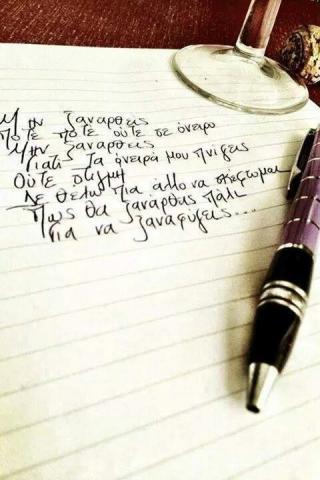 Μην ξαναρθεις
Ποτε ποτε ούτε σε όνειρο
Μην ξαναρθεις
Γιατι τα όνειρά μου πνίγεις
Ούτε στιγμή
Δε θελω πια άλλο να σκεφτομαι
Πως θα ξαναρθεις πάλι
Για να ξαναφύγεις...